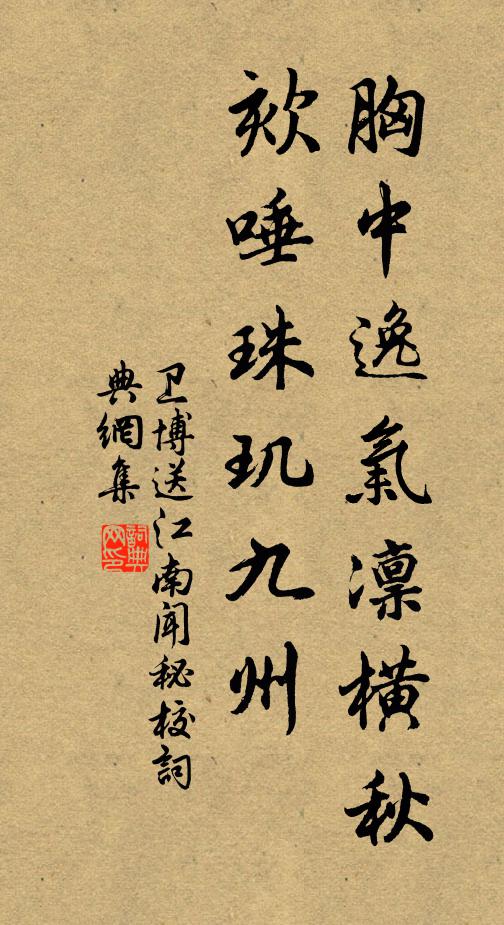 胸中逸氣凛橫秋
欬唾珠玑九州
卫博送江南闻秘校詞
典網集
詞典
网印